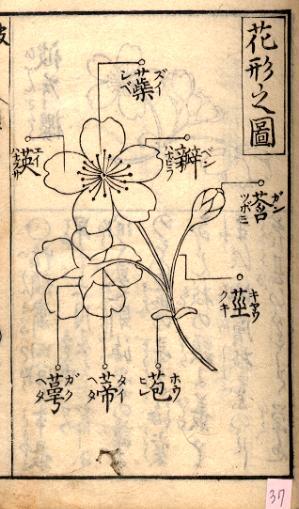 花形之圖
ズイ
蘂
シベ
ベン
瓣
ハナビラ
エイ
英
ハナブサ
ガン
莟
ツボミ
キヤウ
莖
クキ
ホウ
苞
ヒレ
タイ
蒂
ヘタ
ガク
萼
ヘタ
37